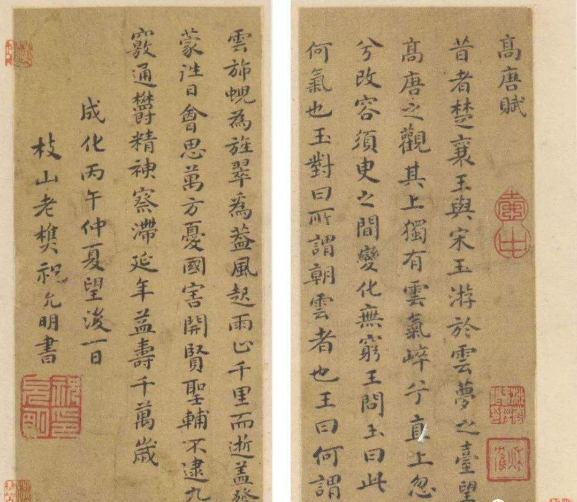 高唐賦
昔者楚襄王與宋玉游於雲夢之臺望
高唐之觀其上獨有雲氣崪兮直上忽
兮改容須臾之間變化無窮王問玉曰此
何氣也玉對曰所謂朝雲者也王曰何謂
雲旆蜺為旌翠為蓋風起雨止千里而逝蓋發
蒙往自會思萬方憂國害開賢聖輔不逮九
竅通鬱精神察滯延年益壽千萬歲
成化丙午仲夏望後一日
枝山老樵祝允明書